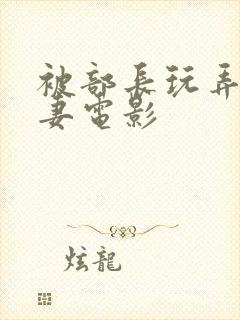 被部長玩弄
妻電影
炫龍